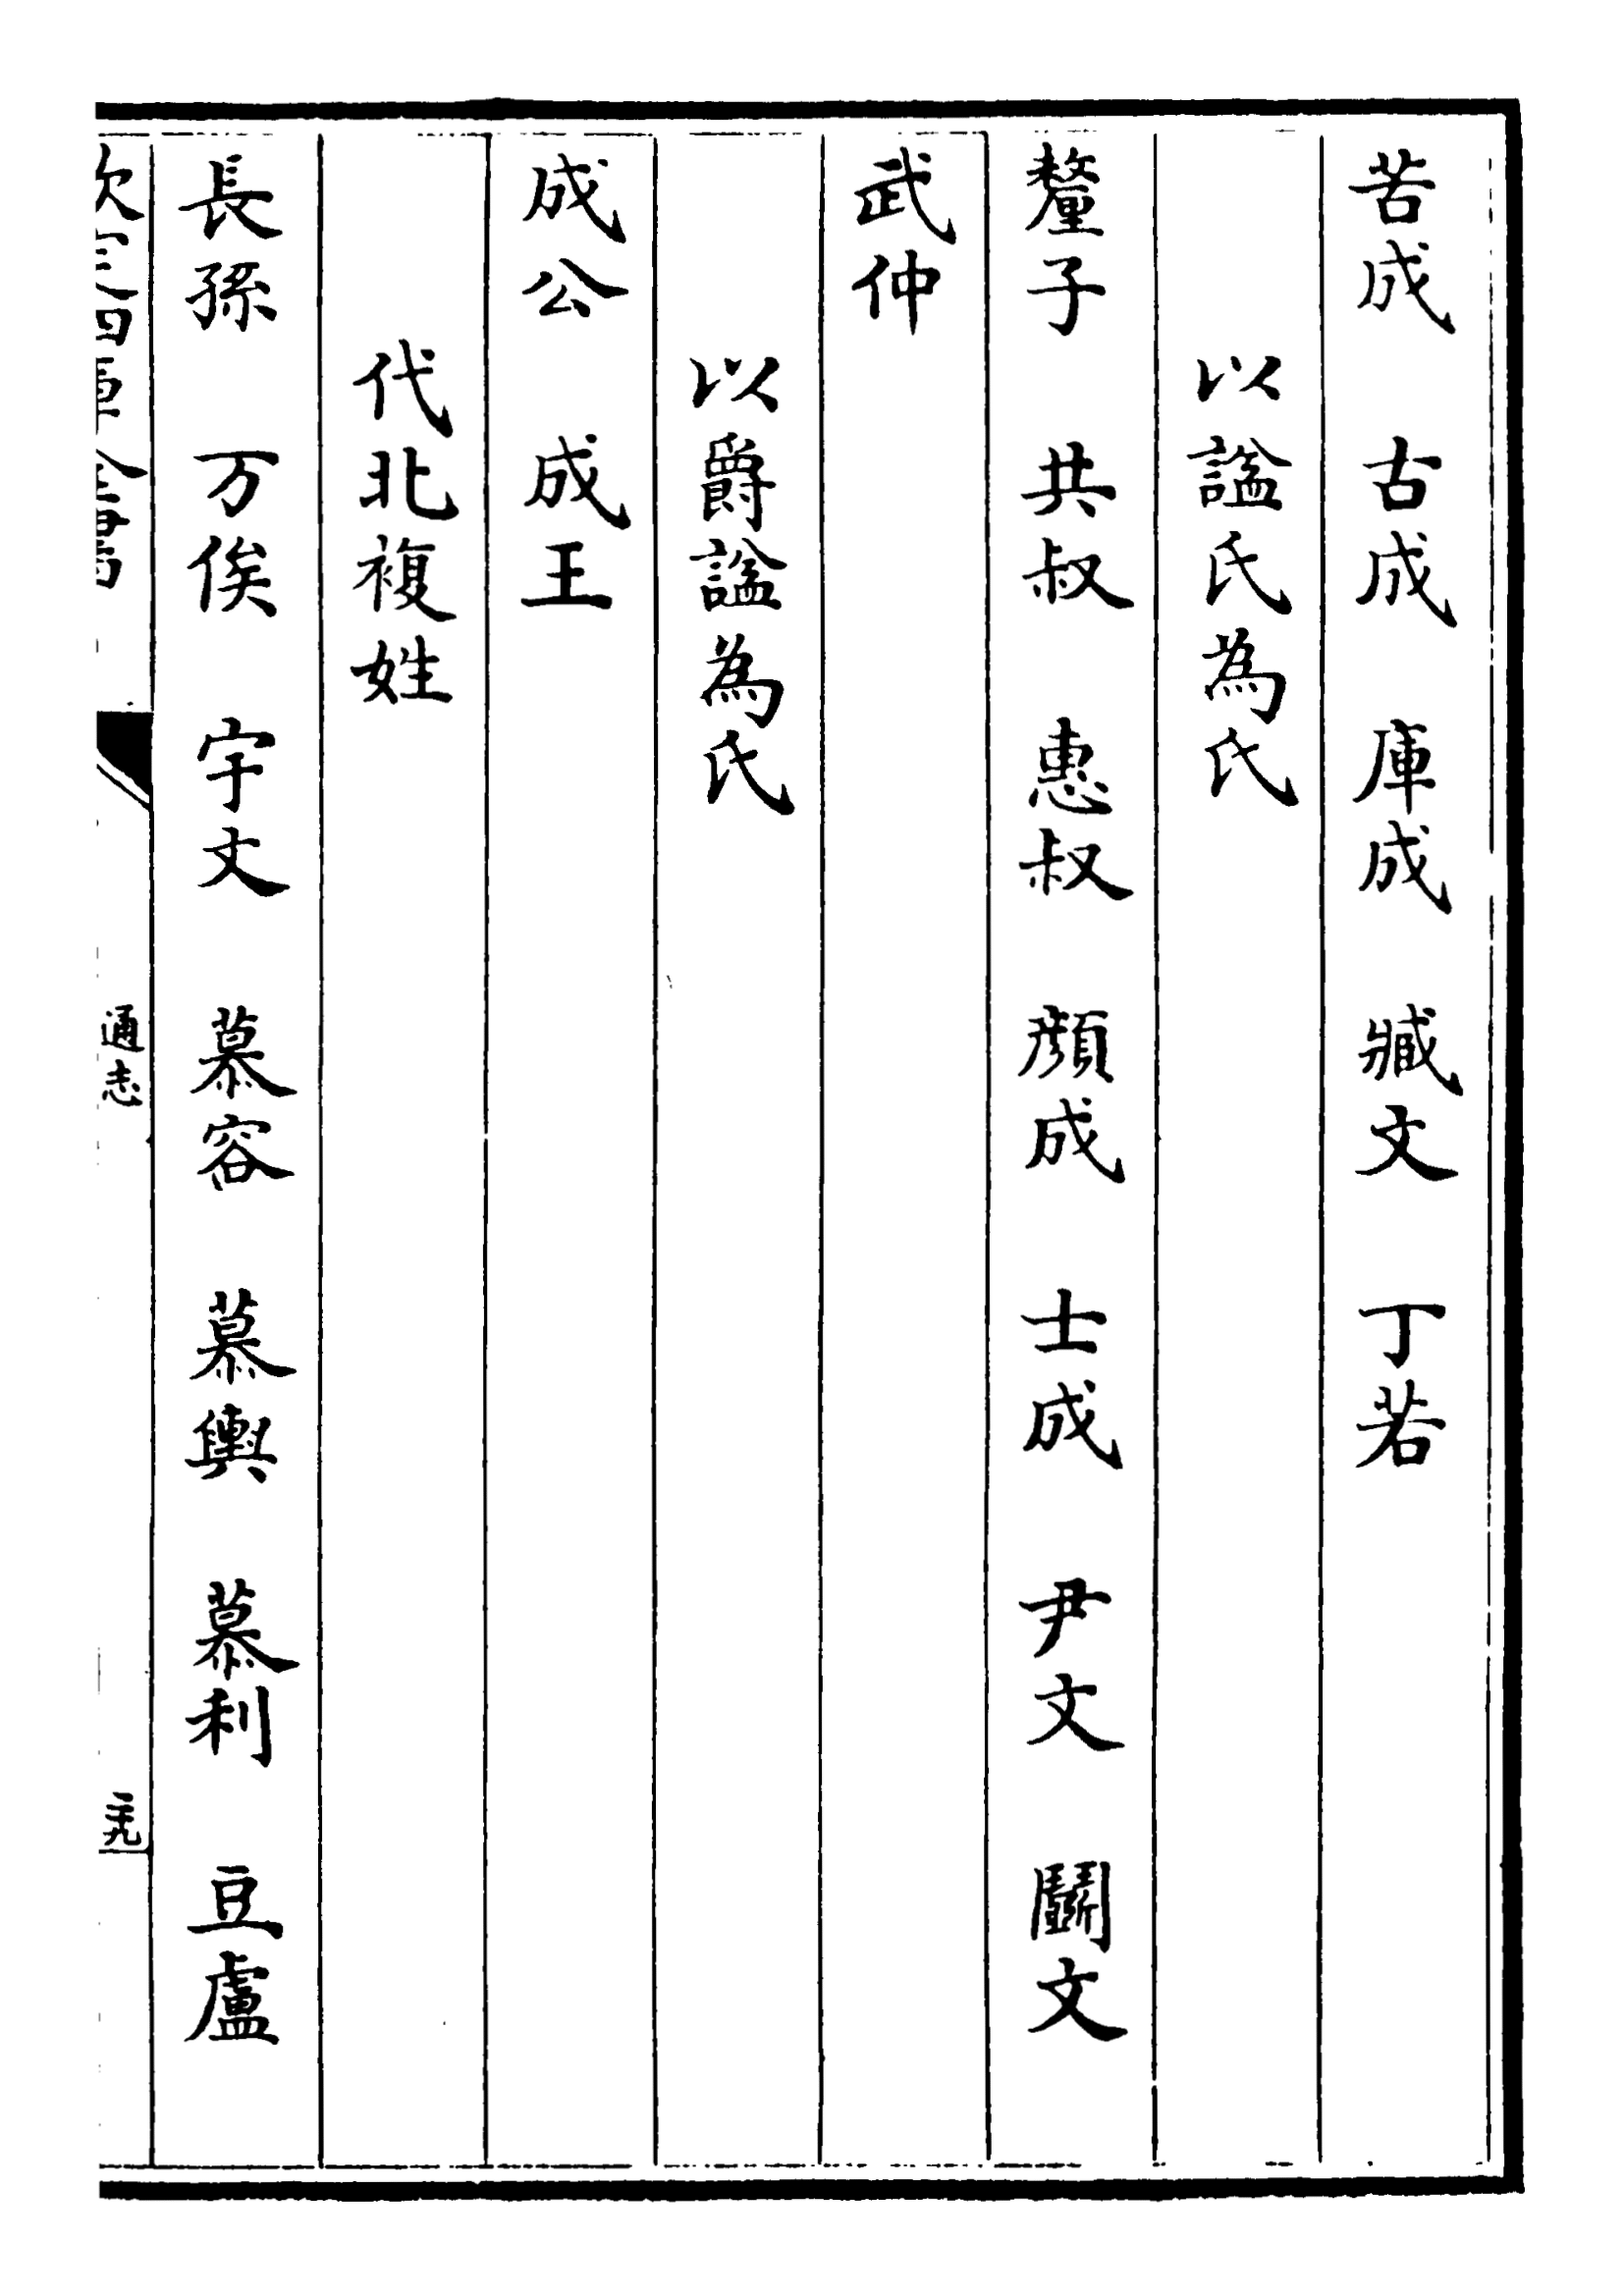 苦成　古成　庫成　臧文　丁若
以諡氏為氏
釐子　共叔　惠叔　顏成　士成　尹文　鬭文
武仲
以爵諡為氏
成公　成王
代北複姓
長孫　万俟　宇文　慕容　慕輿　慕利　豆盧
欽定四庫全書　通志　二十九